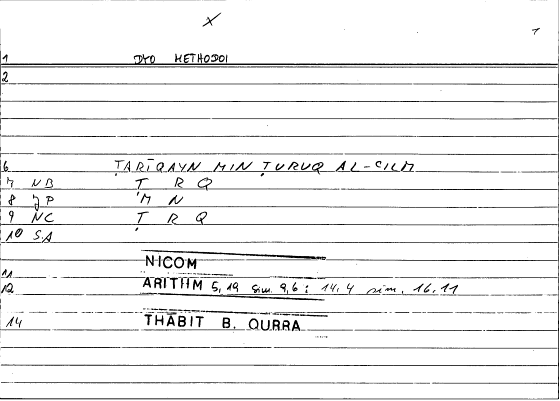 X
1
1 DYO METHODOI
2
6 ṬARĪQAYN MIN ṬURUQ AL-CILM
7 NB Ṭ R Q
8 JP M N
9 NC Ṭ R Q
10 SA
NICOM
11
12 ARITHM 5,19 sim. 9,6 : 14,4 sim. 16,11
14 THĀBIT B. QURRA